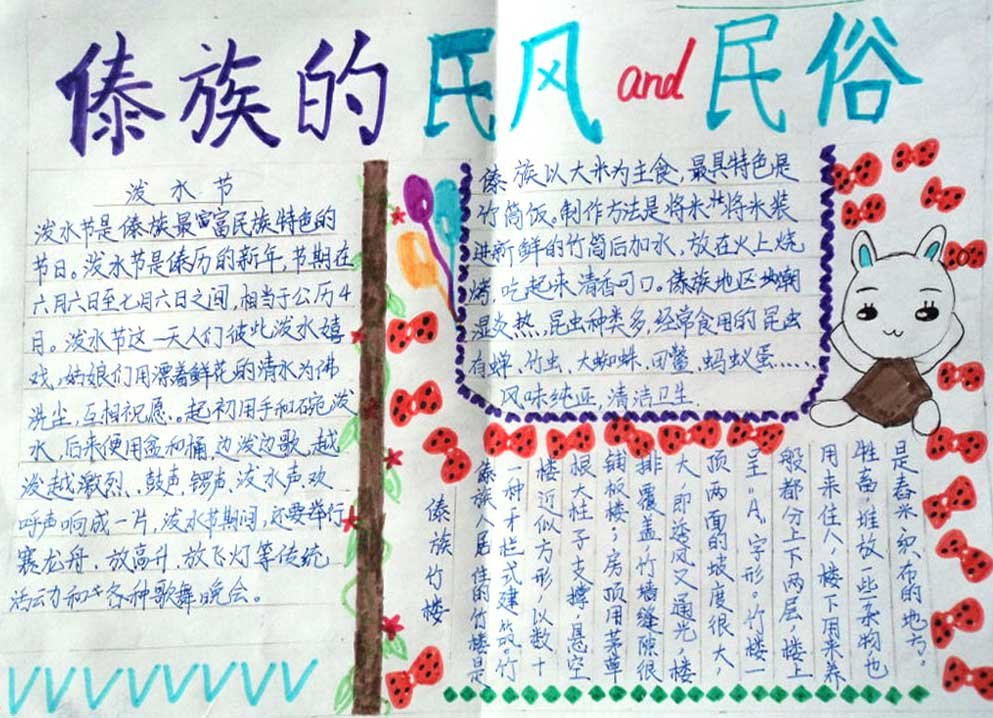 傣族的民风and民俗
泼水节
泼水节是傣族最富民族特色的
节日。泼水节是傣历的新年,节期在
六月六日至七月六日之间,相当于公历4
月。泼水节这一天人们彼此泼水嬉
戏,姑娘们用漂着鲜花的清水为佛
洗尘,互相祝愿。起初用手和碗泼
水,后来便用盆和桶,边泼边歌,越
泼越激烈、鼓声,锣声、泼水声、欢
呼声响成一片,泼水节期间,还要举行
赛龙舟、放高升、放飞灯等传统
活动和各种歌舞晚会。
傣族以大米为主食,最具特色是
竹筒饭。制作方法是将米将米装
进新鲜的竹筒后加水,放在火上烧
烤,吃起来清香可口。傣族地区潮
湿炎热、昆虫种类多,经常食用的昆虫
有蝉、竹虫、大蜘蛛、田鳖、蚂蚁蛋……
风味纯正,清洁卫生.
傣族竹楼
傣族人居住的竹楼是
一种才栏式建筑。竹
楼近似方形,以数十
根大柱子支撑,悬空
铺板楼;房顶用茅草
排覆盖,竹墙缝隙很
大,即透风又通光,楼
顶两面的坡度很大,
呈"A"字形。竹楼一
般都分上下两层,楼上
用来住人,楼下用来养
牲畜,堆放一些杂物也
是舂米、织布的地方。